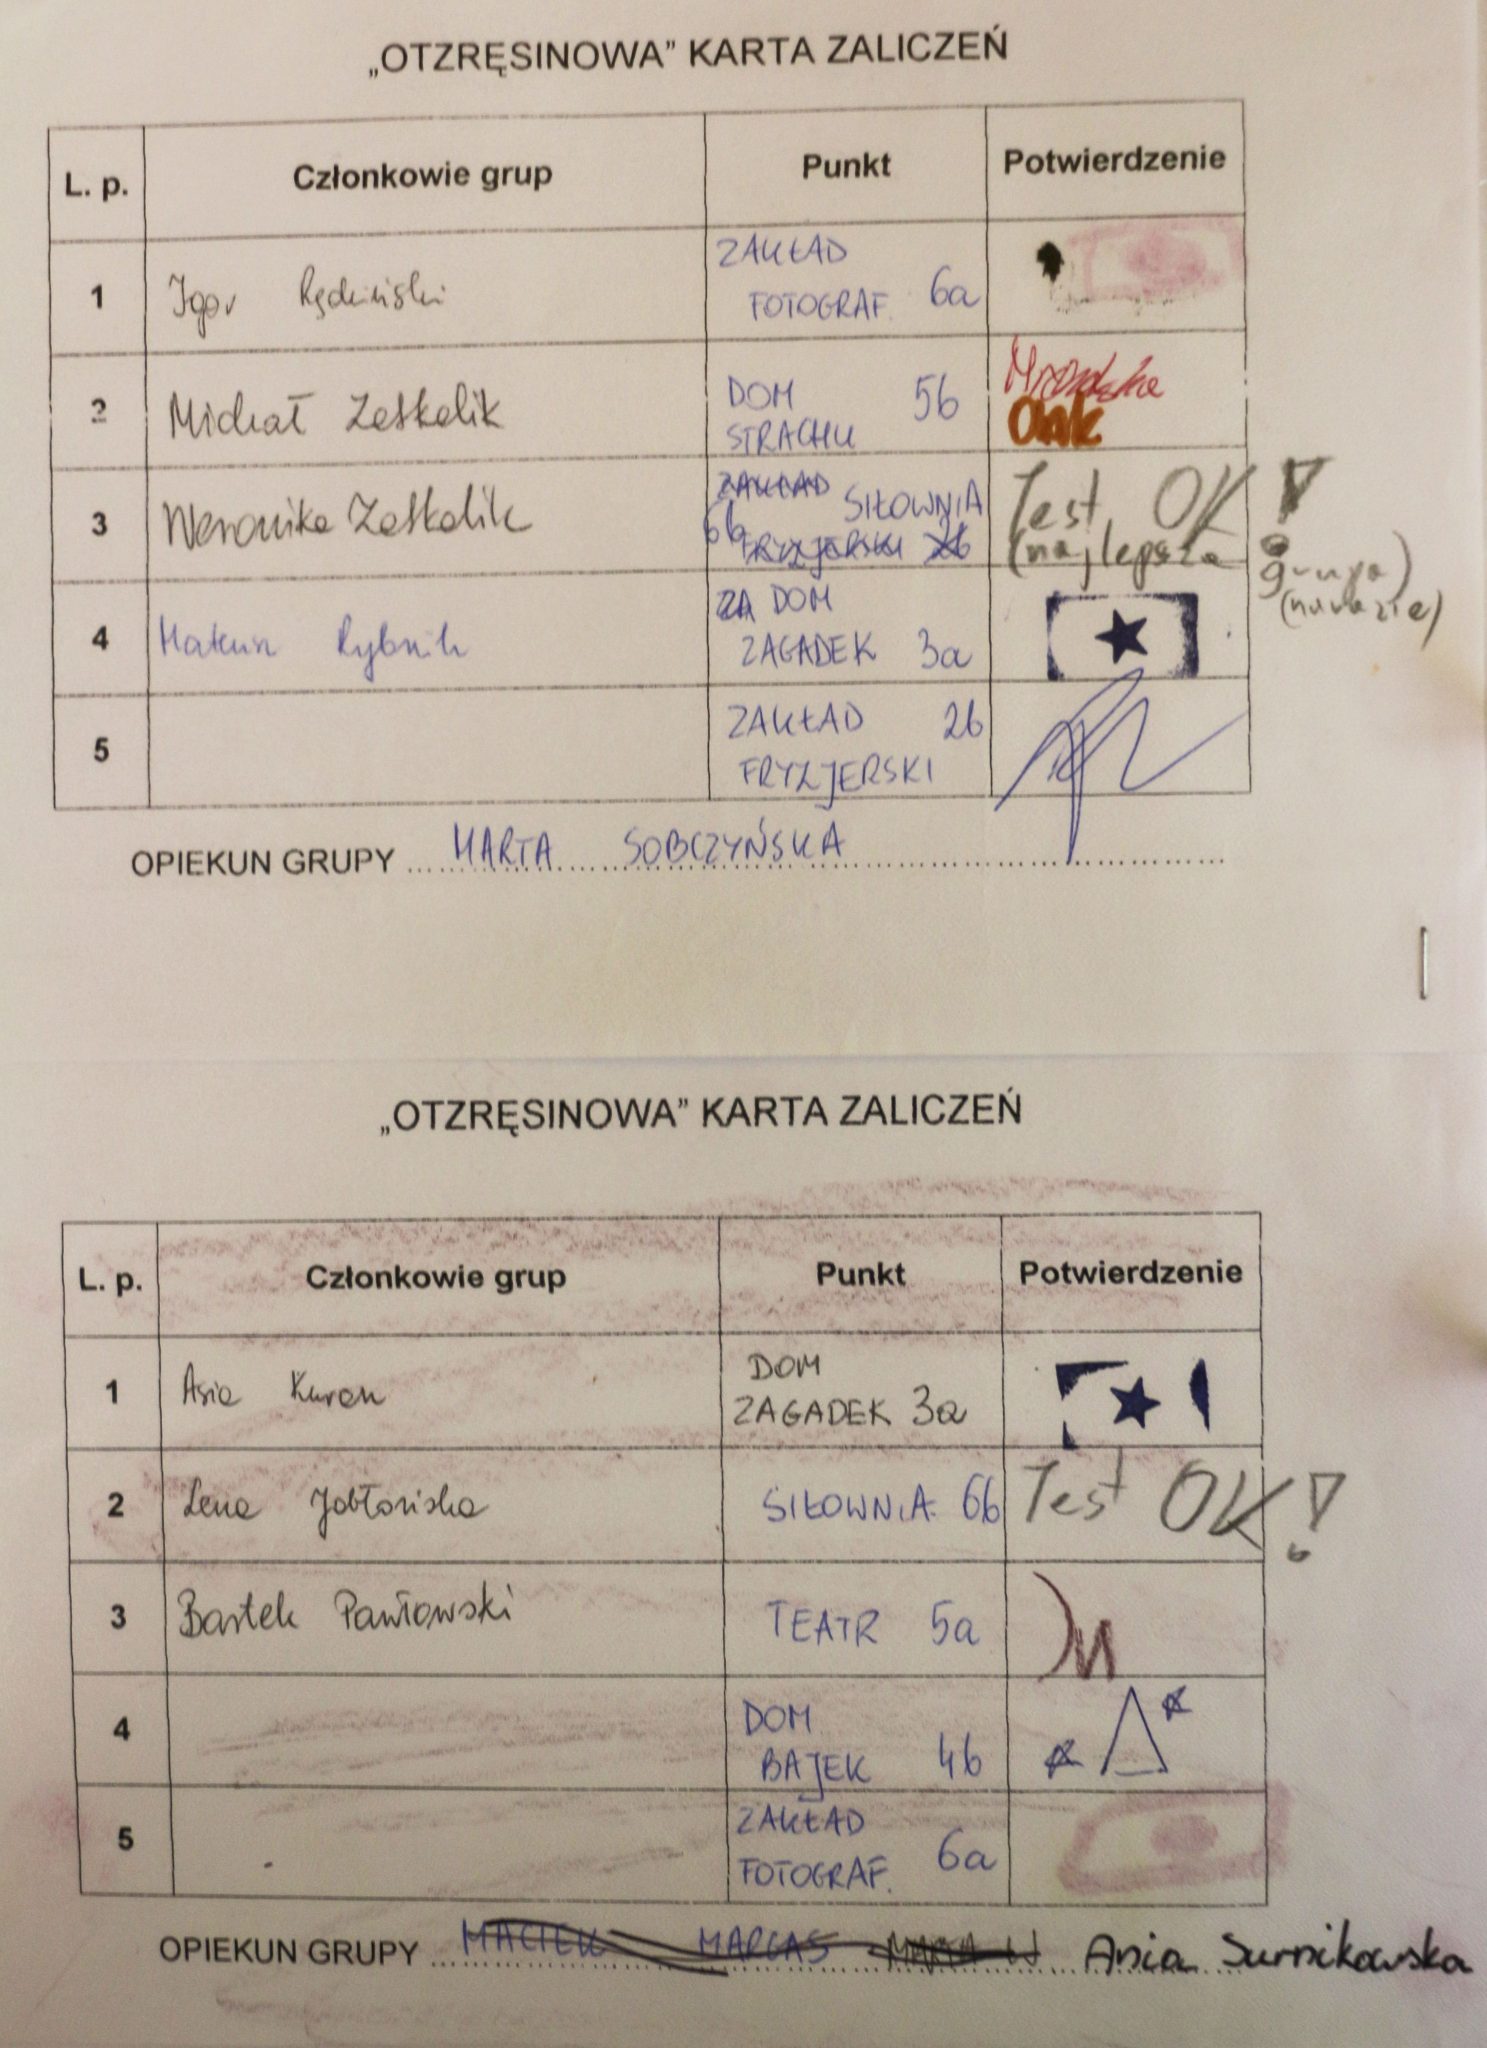 „OTZRĘSINOWA” KARTA ZALICZEŃ
L. p. Członkowie grup Punkt Potwierdzenie
1 Igor ZAKŁAD
FOTOGRAF. 6a
2 Michał DOM 5b
STRACHU
3 Weronika SIŁOWNIA 6b Test OK!
(najlepsza grupa)
(na razie)
4 Mateusz Rybnik DOM
ZAGADEK 3a
5 ZAKŁAD 2b
FRYZJERSKI
OPIEKUN GRUPY MARTA SOBCZYŃSKA
„OTZRĘSINOWA” KARTA ZALICZEŃ
L. p. Członkowie grup Punkt Potwierdzenie
1 Asia Kuren DOM
ZAGADEK 3a
2 Lena Jabłońska SIŁOWNIA 6b Test OK!
3 Bartek Pawłowski TEATR 5a
4 DOM
BAJEK 4b
5 ZAKŁAD
FOTOGRAF. 6a
OPIEKUN GRUPY MACIEK MARGAS Ania Surnikowska